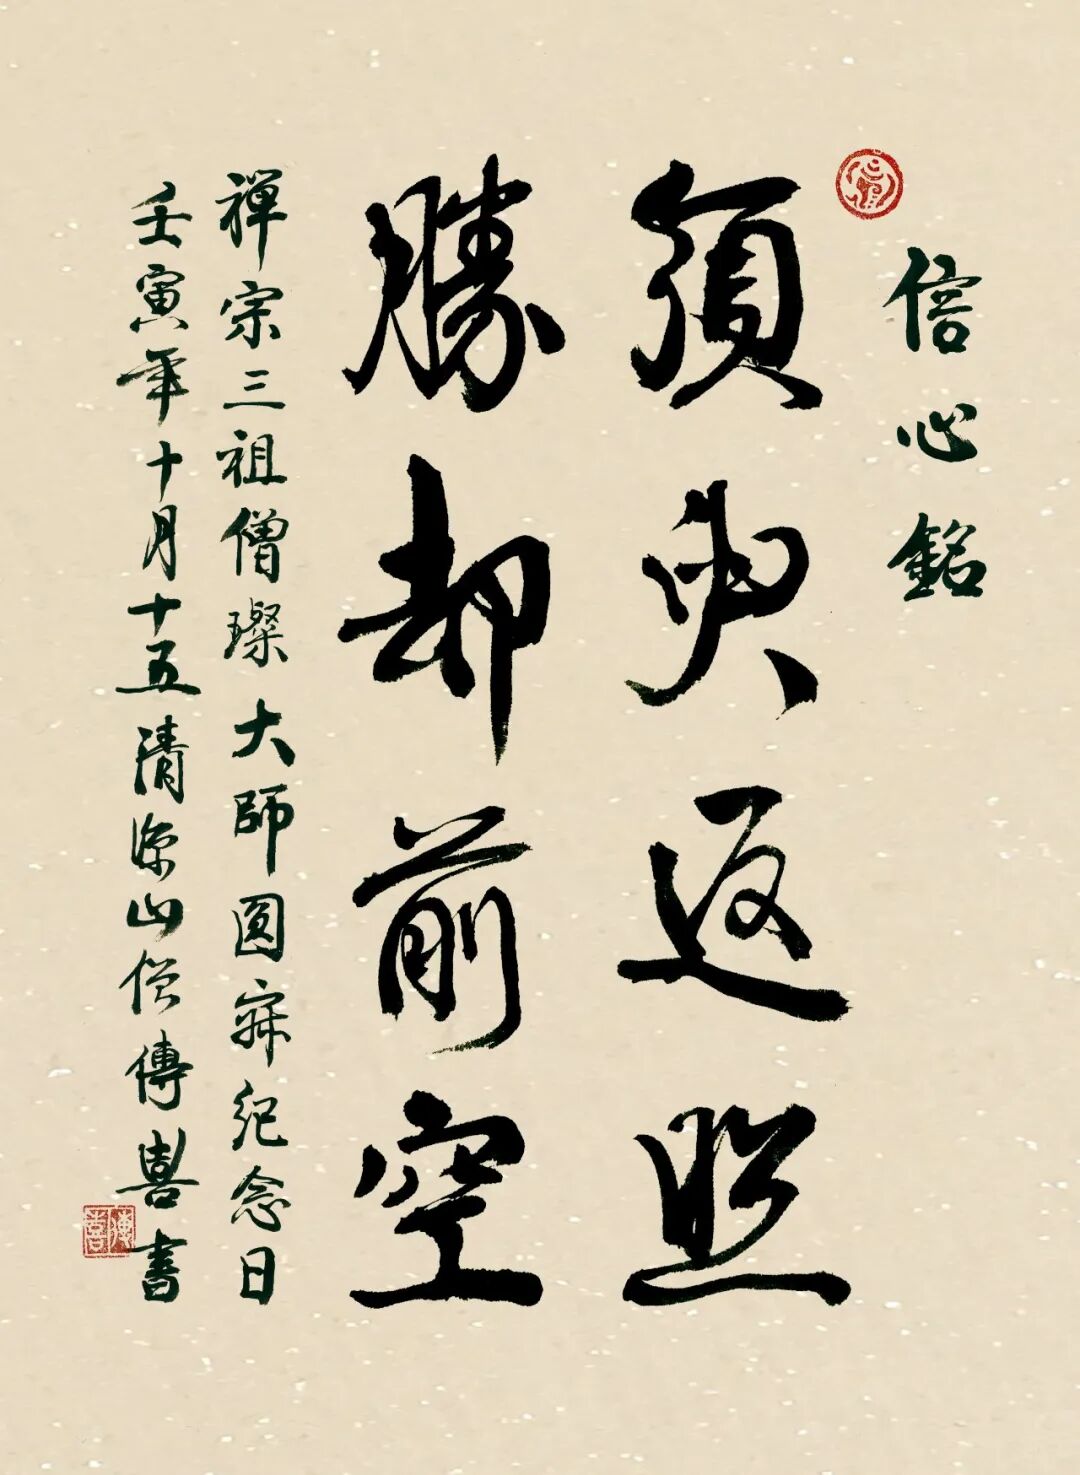 信心銘
須臾返照
勝却前空
禪宗三祖僧璨大師圓寂纪念日
壬寅年十月十五清源山僧傳喜書
傳喜